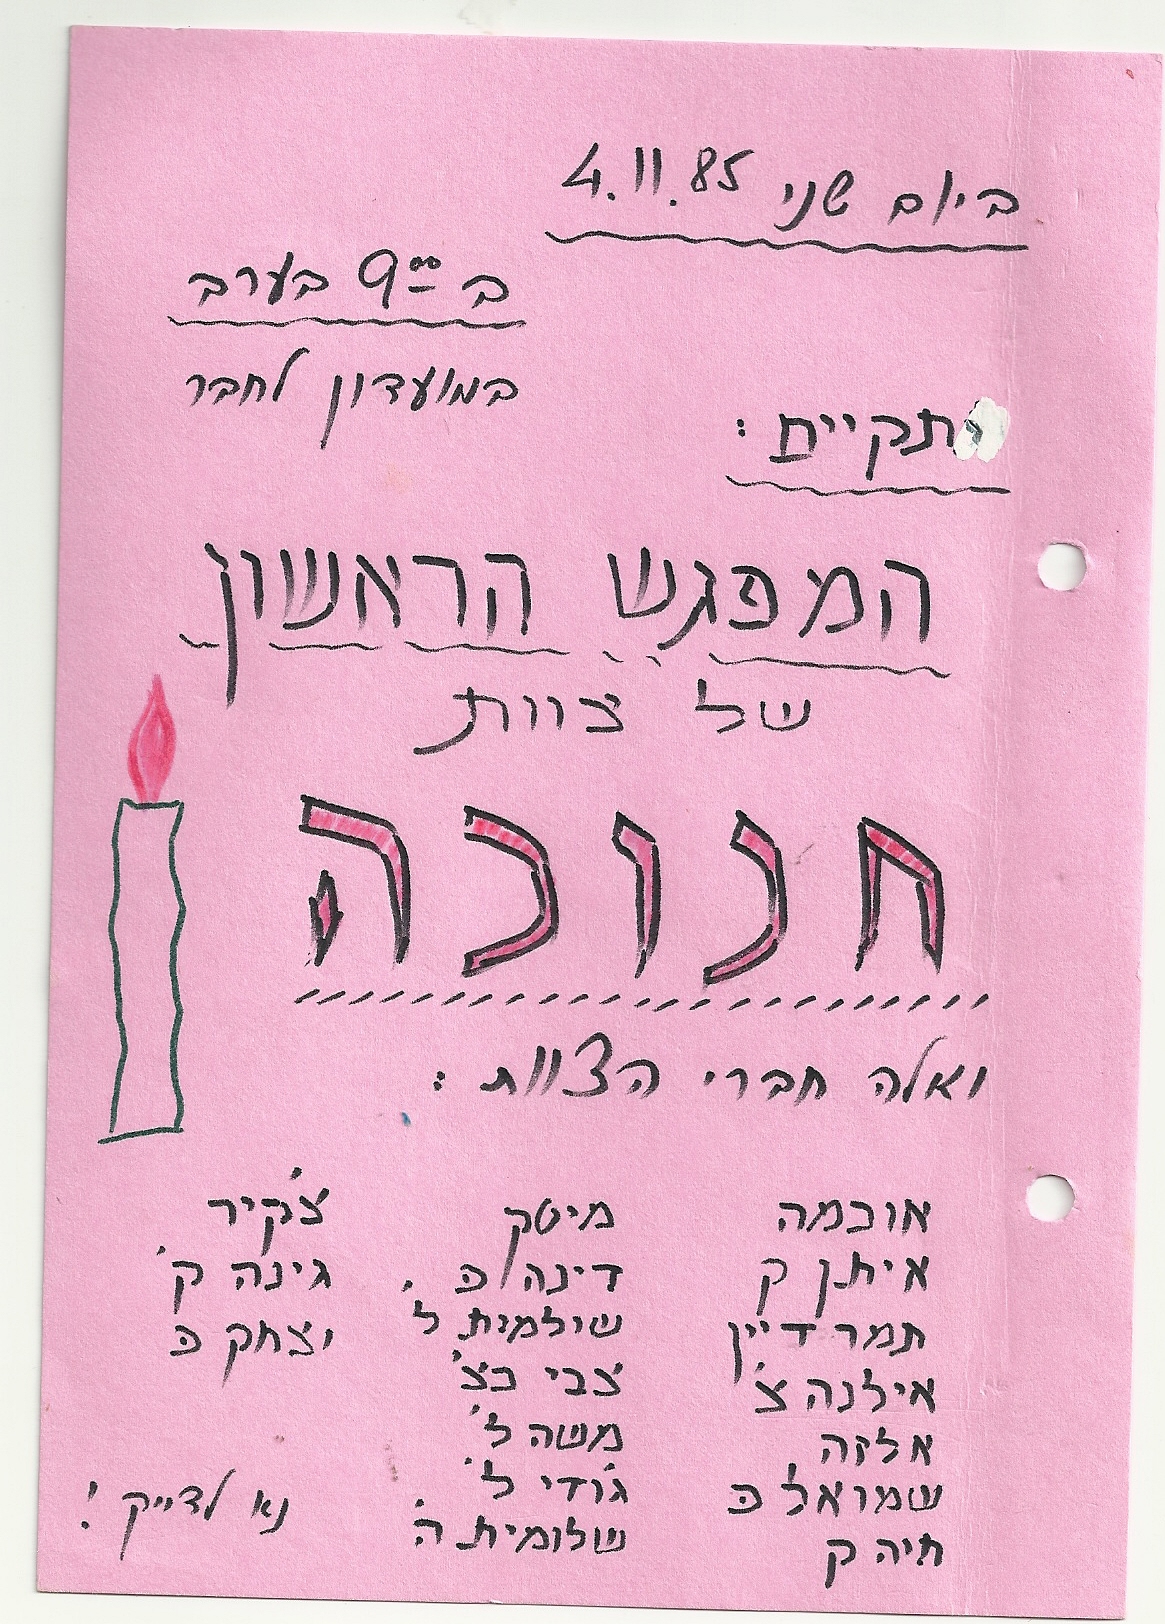 ביום שני 4.11.85
ב 9⁰⁰ בערב
במועדון לחבר
יתקיים :
המפגש הראשון
של צוות
חנוכה
ואלה חברי הצוות :
אוכמה
איתן ק
תמר דיין
אילנה צ'
אלזה
שמואל פ
חיה ק
מיטק
דינה פ.
שולמית ל'
צבי כצ'
משה ל'
ג'ודי ל'
שלומית ה'
צ'קיר
גינה ק'
יצחק פ
נא לדייק !